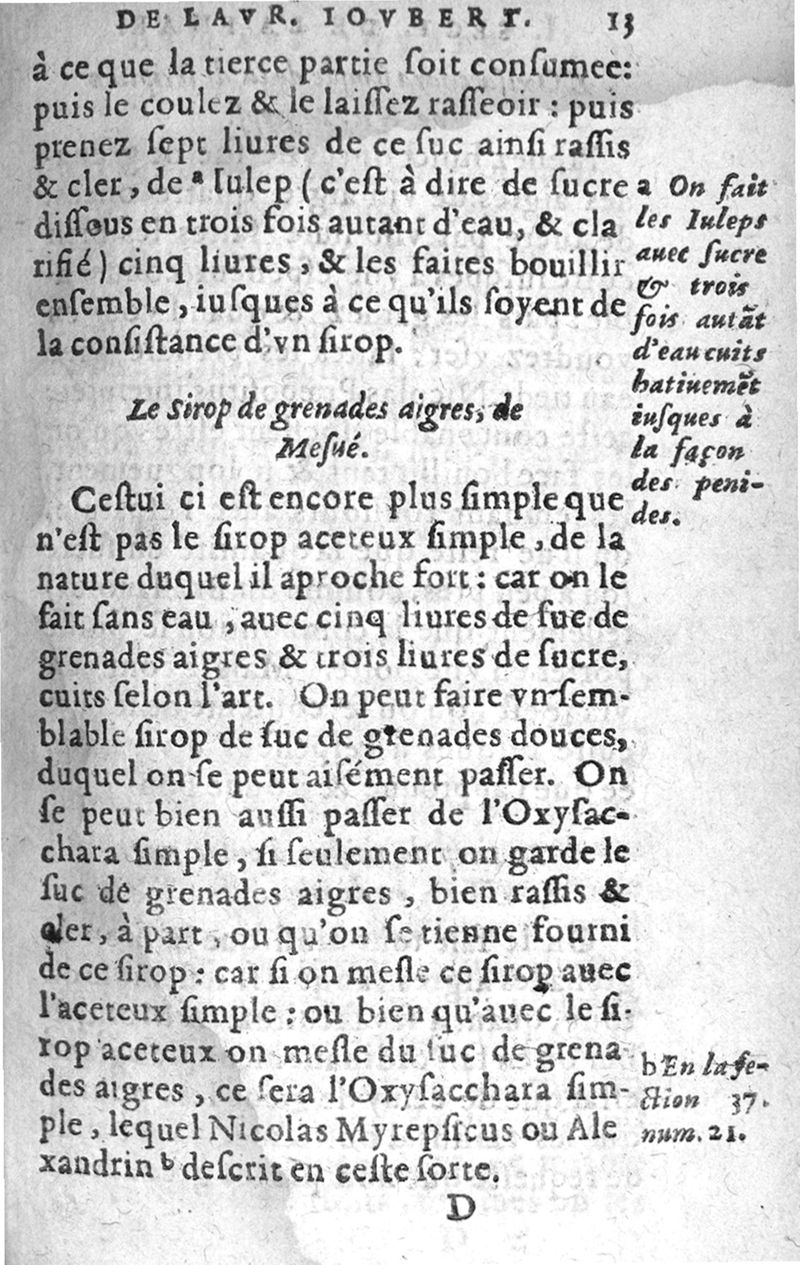 DE LAVR. IOVBERT. 13
à ce que la tierce partie ſoit conſumee:
puis le coulez & le laiſſez raſſeoir : puis
prenez ſept liures de ce ſuc ainſi raſſis
& cler, de ª Iulep ( c'eſt à dire de ſucre
diſſous en trois fois autant d'eau, & cla
rifié ) cinq liures, & les faites bouillir
enſemble, iuſques à ce qu'ils ſoyent de
la conſiſtance d'vn ſirop.
a On fait
les Iuleps
auec ſucre
& trois
fois autãt
d'eau cuits
hatiuemẽt
iuſques à
la façon
des peni-
des.
Le Sirop de grenades aigres, de
Meſué.
Ceſtui ci eſt encore plus ſimple que
n'eſt pas le ſirop aceteux ſimple, de la
nature duquel il aproche fort : car on le
fait ſans eau, auec cinq liures de ſuc de
grenades aigres & trois liures de ſucre,
cuits ſelon l'art. On peut faire vn ſem-
blable ſirop de ſuc de grenades douces,
duquel on ſe peut aiſément paſſer. On
ſe peut bien auſſi paſſer de l'Oxyſac-
chara ſimple, ſi ſeulement on garde le
ſuc de grenades aigres, bien raſſis &
cler, à part, ou qu'on ſe tienne fourni
de ce ſirop : car ſi on meſle ce ſirop auec
l'aceteux ſimple : ou bien qu'auec le ſi-
rop aceteux on meſle du ſuc de grena
des aigres, ce ſera l'Oxyſacchara ſim-
ple, lequel Nicolas Myrepſicus ou Ale
xandrin ᵇ deſcrit en ceſte ſorte.
b En la ſe-
ction 37.
num. 21.
D